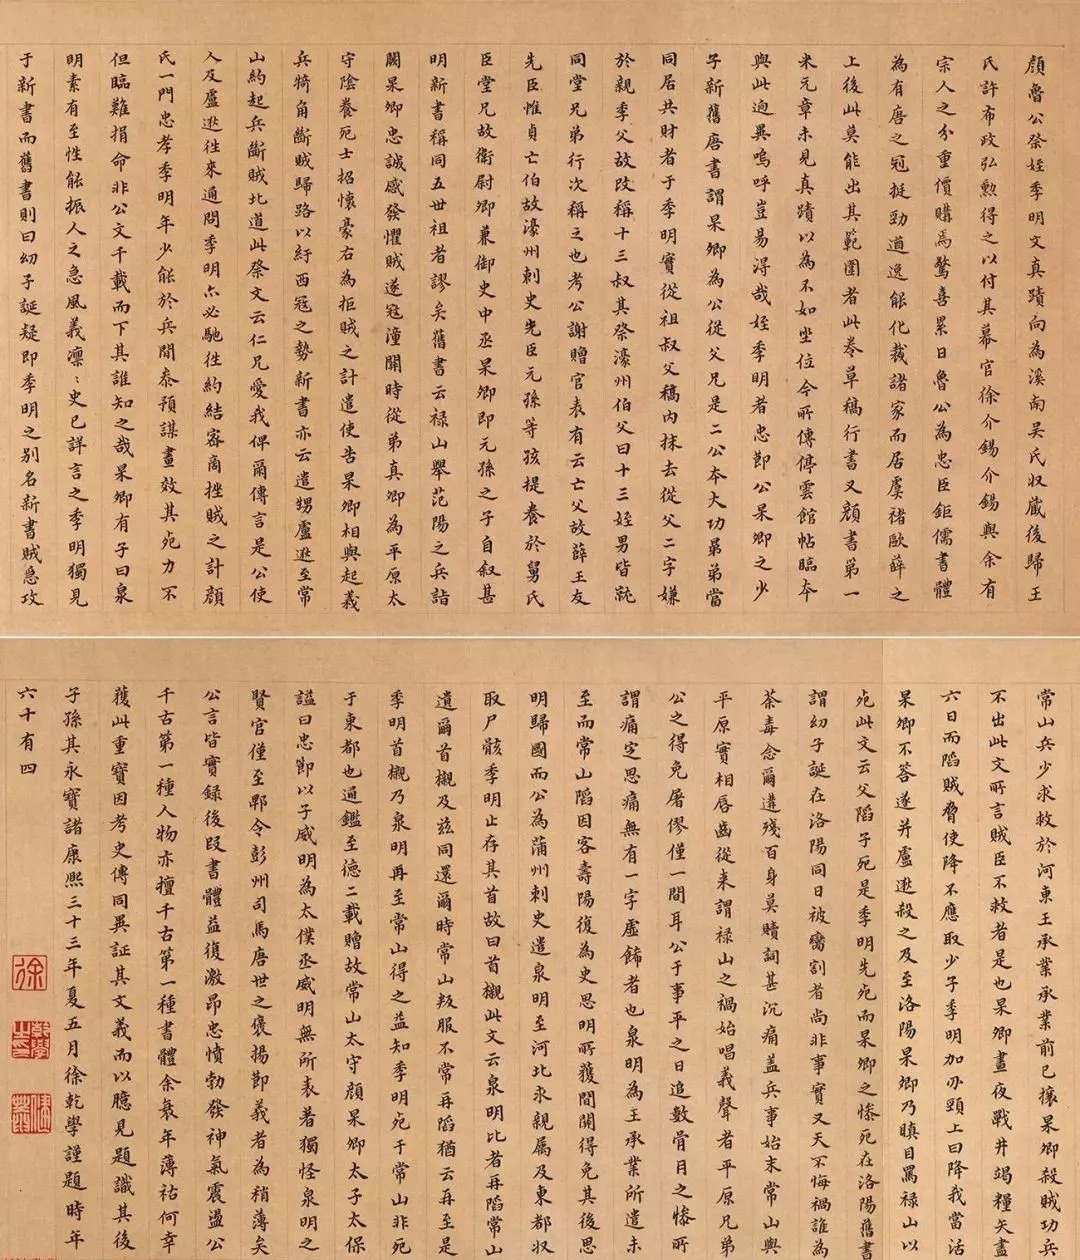 顏魯公祭姪季明文真蹟向為溪南吳氏収藏後歸王
氏許布政弘勲得之以付其幕官徐介錫介錫與余有
宗人之分重價購焉驚喜累日魯公為忠臣鉅儒書體
為有唐之冠挺勁遒逸能化裁諸家而居虞褚歐薛之
上後此莫能出其範圍者此卷草稿行書又顏書第一
米元章未見真蹟以為不如坐位今所傳停雲館帖臨本
與此逈異嗚呼豈易得哉姪季明者忠節公杲卿之少
子新舊唐書謂杲卿為公從父兄是二公本大功昜弟當
同居共財者于季明實從祖叔父稿内抹去從父二字嫌
於親季父故改稱十三叔其祭濠州伯父曰十三姪男皆就
同堂兄弟行次稱之也考公謝贈官表有云亡父故薛王友
先臣惟貞亡伯故濠州刺史先臣元孫等孩提養於舅氏
臣堂兄故衛尉卿兼御史中丞杲卿即元孫之子自叙甚
明新書稱同五世祖者謬矣舊書云禄山舉范陽之兵詣
闕杲卿忠誠感發懼賊遂寇潼關時從弟真卿為平原太
守陰養死士招懷豪右為拒賊之計遣使告杲卿相與起義
兵犄角斷賊歸路以紓西寇之勢新書亦云遣甥盧逖至常
山約起兵斷賊北道此祭文云仁兄愛我俾爾傳言是公使
人及盧逖往來通問季明亦必馳往約結密商挫賊之計顏
氏一門忠孝季明年少能於兵間泰預謀畫效其死力不
但臨難捐命非公文千載而下其誰知之哉杲卿有子曰泉
明素有至性能振人之急風義凛：史已詳言之季明獨見
于新書而舊書則曰幼子誕疑即季明之别名新書賊急攻
常山兵少求救於河東王承業承業前已攘杲卿殺賊功兵
不出此文所言賊臣不救者是也杲卿晝夜戰井竭糧矢盡
六日而陷賊脅使降不應取少子季明加刃頸上曰降我當活
杲卿不答遂并盧逖殺之及至洛陽杲卿乃瞋目罵禄山以
死此文云父陷子死是季明先死而杲卿之慘死在洛陽舊書
謂幼子誕在洛陽同日被臠割者尚非事實又天不悔禍誰為
荼毒念爾遘殘百身莫贖詞甚沉痛盖兵事始末常山與
平原實相唇齒從来謂禄山之禍始唱義聲者平原兄弟
公之得免屠僇僅一間耳公于事平之日追數骨月之慘所
謂痛定思痛無有一字虛飾者也泉明為王承業所遣未
至而常山陷因客壽陽復為史思明所獲間關得免其後思
明歸國而公為蒲州刺史遣泉明至河北求親属及東都収
取尸骸季明止存其首故曰首櫬此文云泉明比者再陷常山
遺爾首櫬及兹同還爾時常山叛服不常再陷猶云再至是
季明首櫬乃泉明再至常山得之益知季明死于常山非死
于東都也通鑑至德二載贈故常山太守顏杲卿太子太保
謚曰忠節以子威明為太僕丞威明無所表著獨怪泉明之
賢官僅至郫令彭州司馬唐世之褒揚節義者為稍薄矣
公言皆實録後段書體益復激昂忠憤勃發神氣震盪公
千古第一種人物亦擅千古第一種書體余衰年薄祜何幸
獲此重寳因考史傳同異証其文義而以臆見題識其後
子孫其永寳諸康熙三十三年夏五月徐乾學謹題時年
六十有四
徐
乾學之印
健菴